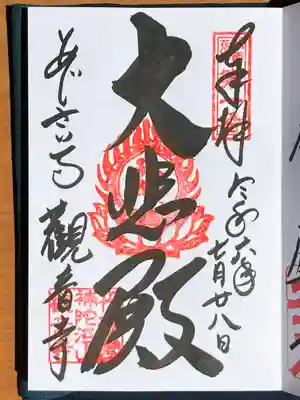 奉拝 令和六年七月廿八日
大悲殿
あじさい寺 觀音寺